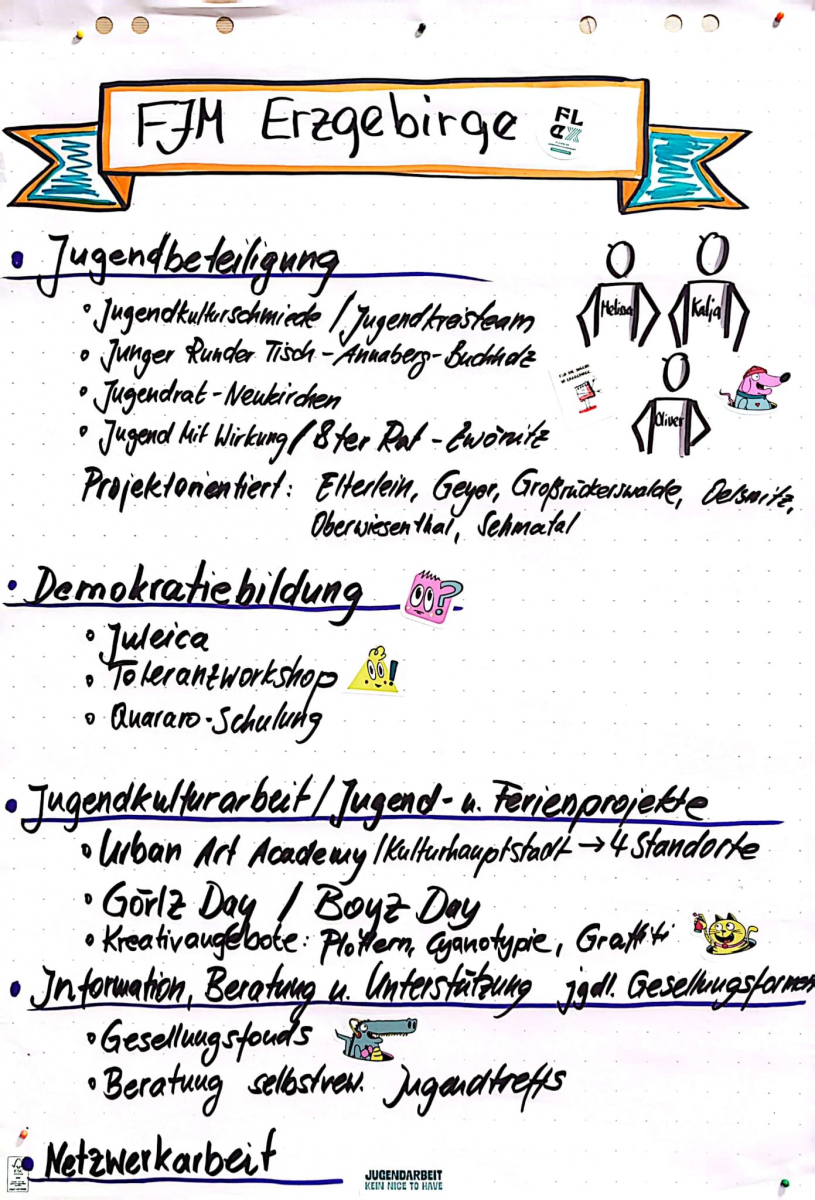 FJM Erzgebirge
FL
ax
• Jugendbeteiligung
Melissa
Katja
Oliver
◦ Jugendkulturschmiede / Jugendkreisteam
◦ Junger Runder Tisch - Annaberg-Buchholz
◦ Jugendrat - Neukirchen
◦ Jugend Mit Wirkung / 8ter Rat - Zwönitz
Projektorientiert: Elterlein, Geyer, Großrückerswalde, Oelsnitz,
Oberwiesenthal, Sehmatal
• Demokratiebildung
◦ Juleica
◦ Toleranzworkshop
◦ Quararo-Schulung
• Jugendkulturarbeit / Jugend- u. Ferienprojekte
◦ Urban Art Academy / Kulturhauptstadt → 4 Standorte
◦ Görlz Day / Boyz Day
◦ Kreativangebote: Plottern, Cyanotypie, Graffiti
• Information, Beratung u. Unterstützung jgdl. Gesellungsformen
◦ Gesellungsfonds
◦ Beratung selbstverw. Jugendtreffs
• Netzwerkarbeit
JUGENDARBEIT
KEIN NICE TO HAVE